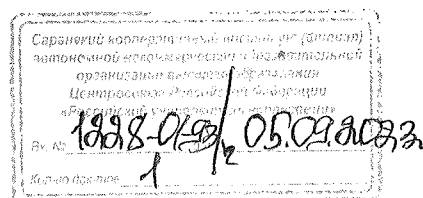 Саранский кооперативный институт (филиал)
автономной некоммерческой образовательной
организации высшего образования
Центросоюза Российской Федерации
«Российский университет кооперации»
Вх. № 1228-01-93/12 05.09.2022
Кол-во листов 1